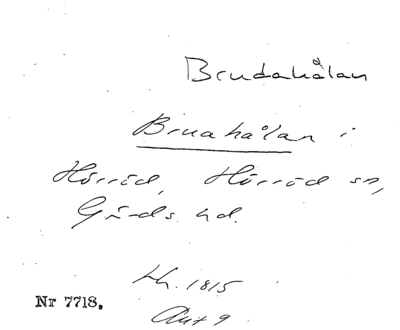 Brudahålan
Bruahålan i
Hörröd, Hörröd sn,
Gärds hd.
Lh. 1815
Akt 9
Nr 7718.